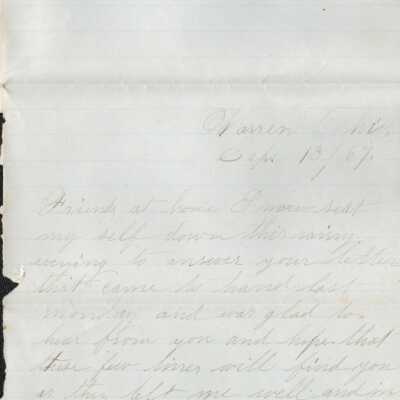 Warren Ohio
Sep. 13/69.
Friends at home I now seat
my self down this rainy
evening to answer your letter
that came to hand last
monday and was glad to
hear from you and hope that
these few lines will find you
as they left me well and in